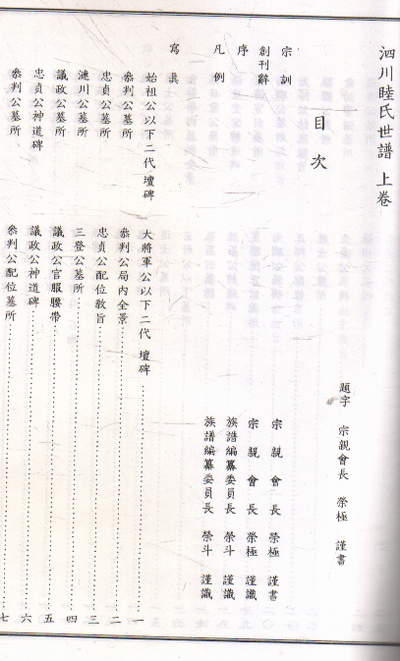 泗川睦氏世譜 上卷
題字 宗親會長 榮極 謹書
目次
宗訓 宗親會長 榮極 謹書
創刊辭 宗親會長 榮極 謹識
序 族譜編纂委員長 榮斗 謹識
凡例 族譜編纂委員長 榮斗 謹識
寫眞
始祖公以下二代 壇碑 大將軍公以下二代 壇碑 一
參判公墓所 參判公局內全景 二
忠貞公墓所 忠貞公配位敎旨 三
漣川公墓所 三登公墓所 四
議政公墓所 議政公官服腰帶 五
忠貞公神道碑 議政公神道碑 六
參判公墓所 參判公配位墓所 七